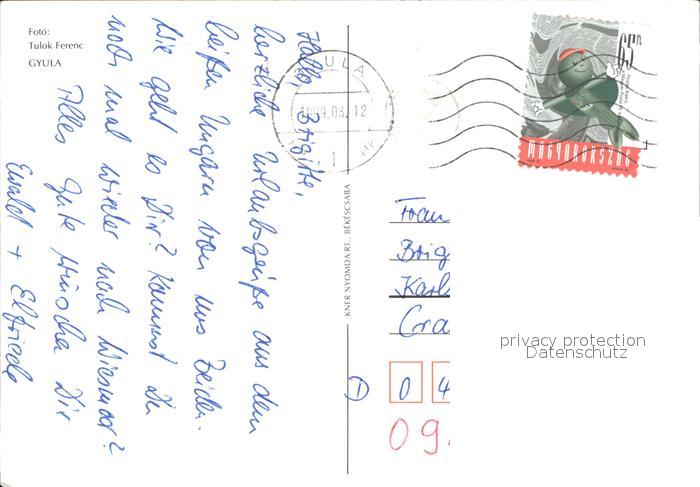 Fotó:
Tulok Ferenc
GYULA
Hallo, Brigitte,
herzliche Urlaubsgrüße aus dem
heißen Ungarn von uns Beiden.
Wie geht es Dir? Kommst Du
noch mal wieder nach Wiesmoor?
Alles Gute wünschen Dir
Ewald + Elfriede
KNER NYOMDA RT., BÉKÉSCSABA
GYULA
1999.08.12
1
65Ft
MAGYARORSZÁG
Frau
Brig
Karl
Cra
privacy protection
Datenschutz
I
0 4
09.